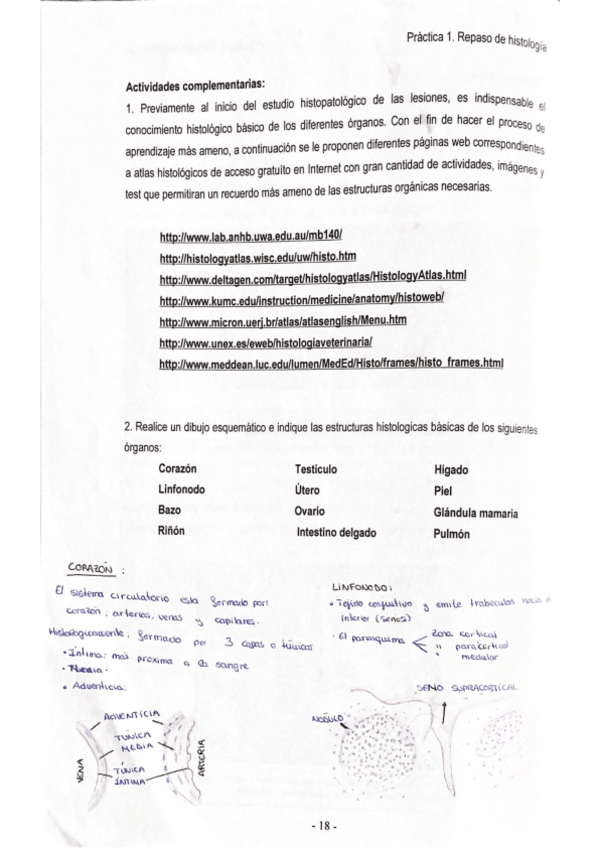 Práctica 1. Repaso de histología
Actividades complementarias:
1. Previamente al inicio del estudio histopatológico de las lesiones, es indispensable el
conocimiento histológico básico de los diferentes órganos. Con el fin de hacer el proceso de
aprendizaje más ameno, a continuación se le proponen diferentes páginas web correspondientes
a atlas histológicos de acceso gratuito en Internet con gran cantidad de actividades, imágenes y
test que permitiran un recuerdo más ameno de las estructuras orgánicas necesarias.
http://www.lab.anhb.uwa.edu.au/mb140/
http://histologyatlas.wisc.edu/uw/histo.htm
http://www.deltagen.com/target/histologyatlas/HistologyAtlas.html
http://www.kumc.edu/instruction/medicine/anatomy/histoweb/
http://www.micron.uerj.br/atlas/atlasenglish/Menu.htm
http://www.unex.es/eweb/histologiaveterinaria/
http://www.meddean.luc.edu/lumen/MedEd/Histo/frames/histo_frames.html
2. Realice un dibujo esquemático e indique las estructuras histologicas básicas de los siguientes
órganos:
Corazón Testículo Hígado
Linfonodo Útero Piel
Bazo Ovario Glándula mamaria
Riñón Intestino delgado Pulmón
CORAZÓN :
El sistema circulatorio esta formado por:
corazón; arterias, venas y capilares.
Histologicamente; formado por 3 capas o túnicas
• Íntima: más próxima a la sangre
• Media:
• Adventicia:
ADVENTICIA
TÚNICA
MEDIA
TÚNICA
ÍNTIMA
VENA
ARTERIA
LINFONODO:
• Tejido conjuntivo y emite trabeculas hacia el
interior (senos)
• El parenquima
Zona cortical
" paracortical
" medular
SENO SUPRACORTICAL
NÓDULO
- 18 -